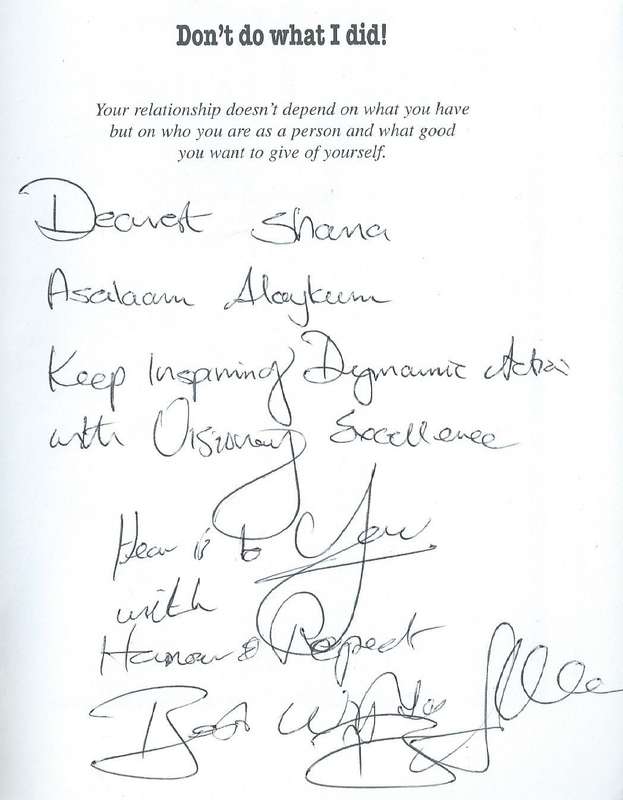 Don't do what I did!
Your relationship doesn't depend on what you have
but on who you are as a person and what good
you want to give of yourself.
Dearest Shana
Asalaam Alaykum
Keep Inspiring Dynamic Action
with Visionary Excellence
Hear is to You
with
Honour & Respect
Best Wishes